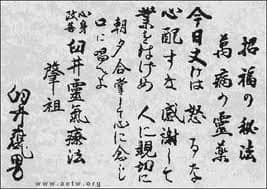 招福の秘法
萬病の霊薬
今日丈けは 怒るな
心配すな 感謝して
業をはげめ 人に親切に
朝夕合掌して心に念じ
口に唱へよ
心身改善 臼井靈氣療法
肇祖
臼井甕男
www.aetw.org